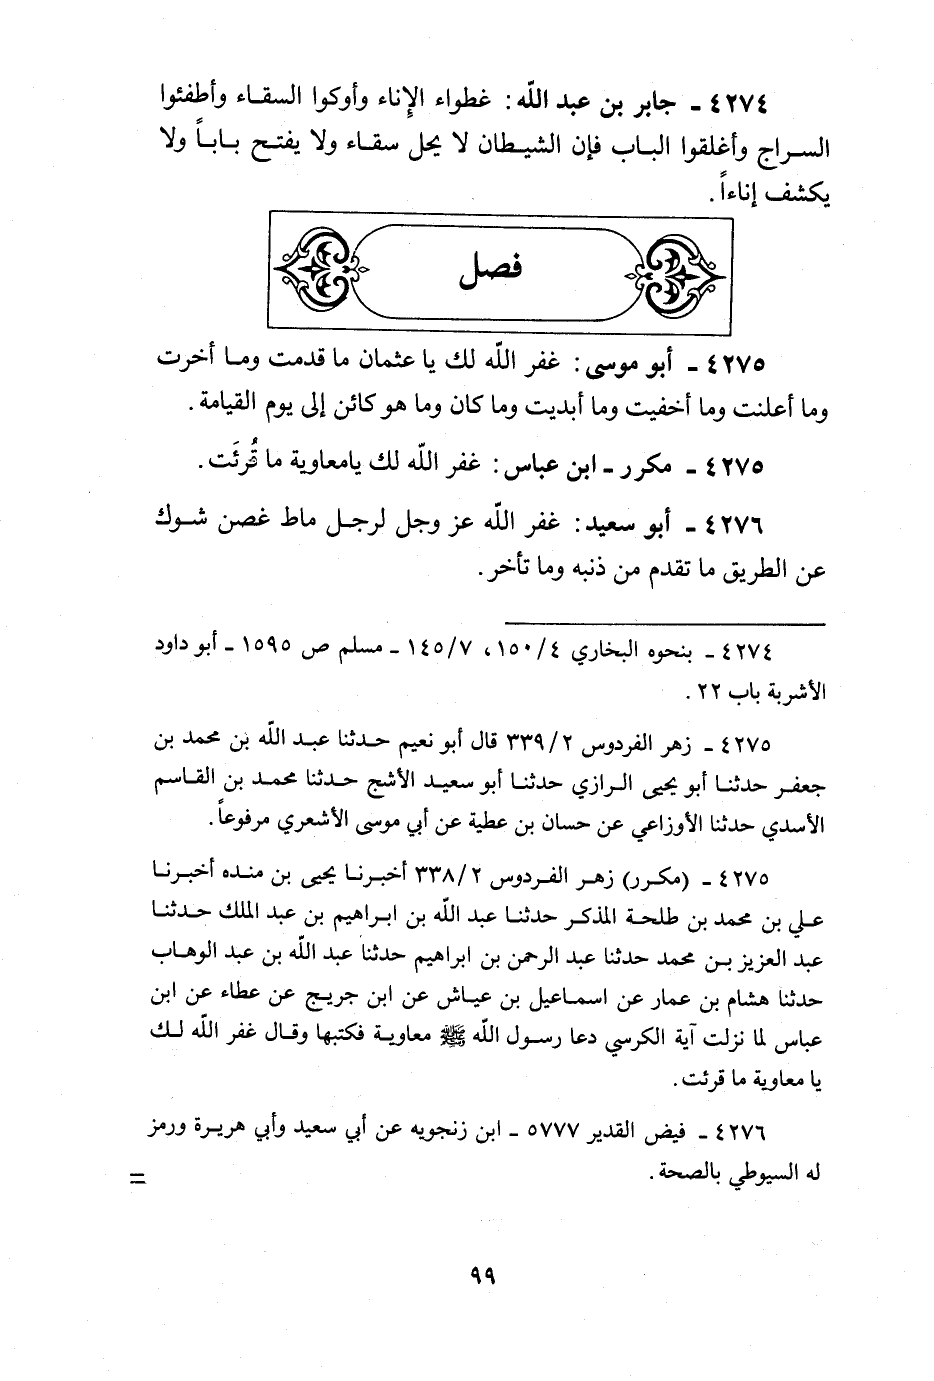 ٤٢٧٤ ـ جابر بن عبد اللّه: غطواء الإناء وأوكوا السقاء وأطفئوا
السراج وأغلقوا الباب فإن الشيطان لا يحل سقاء ولا يفتح باباً ولا
يكشف إناءاً.
فصل
٤٢٧٥ ـ أبو موسى: غفر اللّه لك يا عثمان ما قدمت وما أخرت
وما أعلنت وما أخفيت وما أبديت وما كان وما هو كائن إلى يوم القيامة.
٤٢٧٥ ـ مكرر ـ ابن عباس: غفر اللّه لك يامعاوية ما قُرئَت.
٤٢٧٦ ـ أبو سعيد: غفر اللّه عز وجل لرجل ماط غصن شوك
عن الطريق ما تقدم من ذنبه وما تأخر.
٤٢٧٤ ـ بنحوه البخاري ٤/١٥٠، ٧/١٤٥ ـ مسلم ص ١٥٩٥ ـ أبو داود
الأشربة باب ٢٢.
٤٢٧٥ ـ زهر الفردوس ٢/٣٣٩ قال أبو نعيم حدثنا عبد اللّه بن محمد بن
جعفر حدثنا أبو يحيى الرازي حدثنا أبو سعيد الأشج حدثنا محمد بن القاسم
الأسدي حدثنا الأوزاعي عن حسان بن عطية عن أبي موسى الأشعري مرفوعاً.
٤٢٧٥ ـ (مكرر) زهر الفردوس ٢/٣٣٨ أخبرنا يحيى بن منده أخبرنا
علي بن محمد بن طلحة المذكر حدثنا عبد اللّه بن ابراهيم بن عبد الملك حدثنا
عبد العزيز بن محمد حدثنا عبد الرحمن بن ابراهيم حدثنا عبد اللّه بن عبد الوهاب
حدثنا هشام بن عمار عن اسماعيل بن عياش عن ابن جريج عن عطاء عن ابن
عباس لما نزلت آية الكرسي دعا رسول اللّه ﷺ معاوية فكتبها وقال غفر اللّه لك
يا معاوية ما قرئت.
٤٢٧٦ ـ فيض القدير ٥٧٧٧ ـ ابن زنجويه عن أبي سعيد وأبي هريرة ورمز
له السيوطي بالصحة. =
٩٩